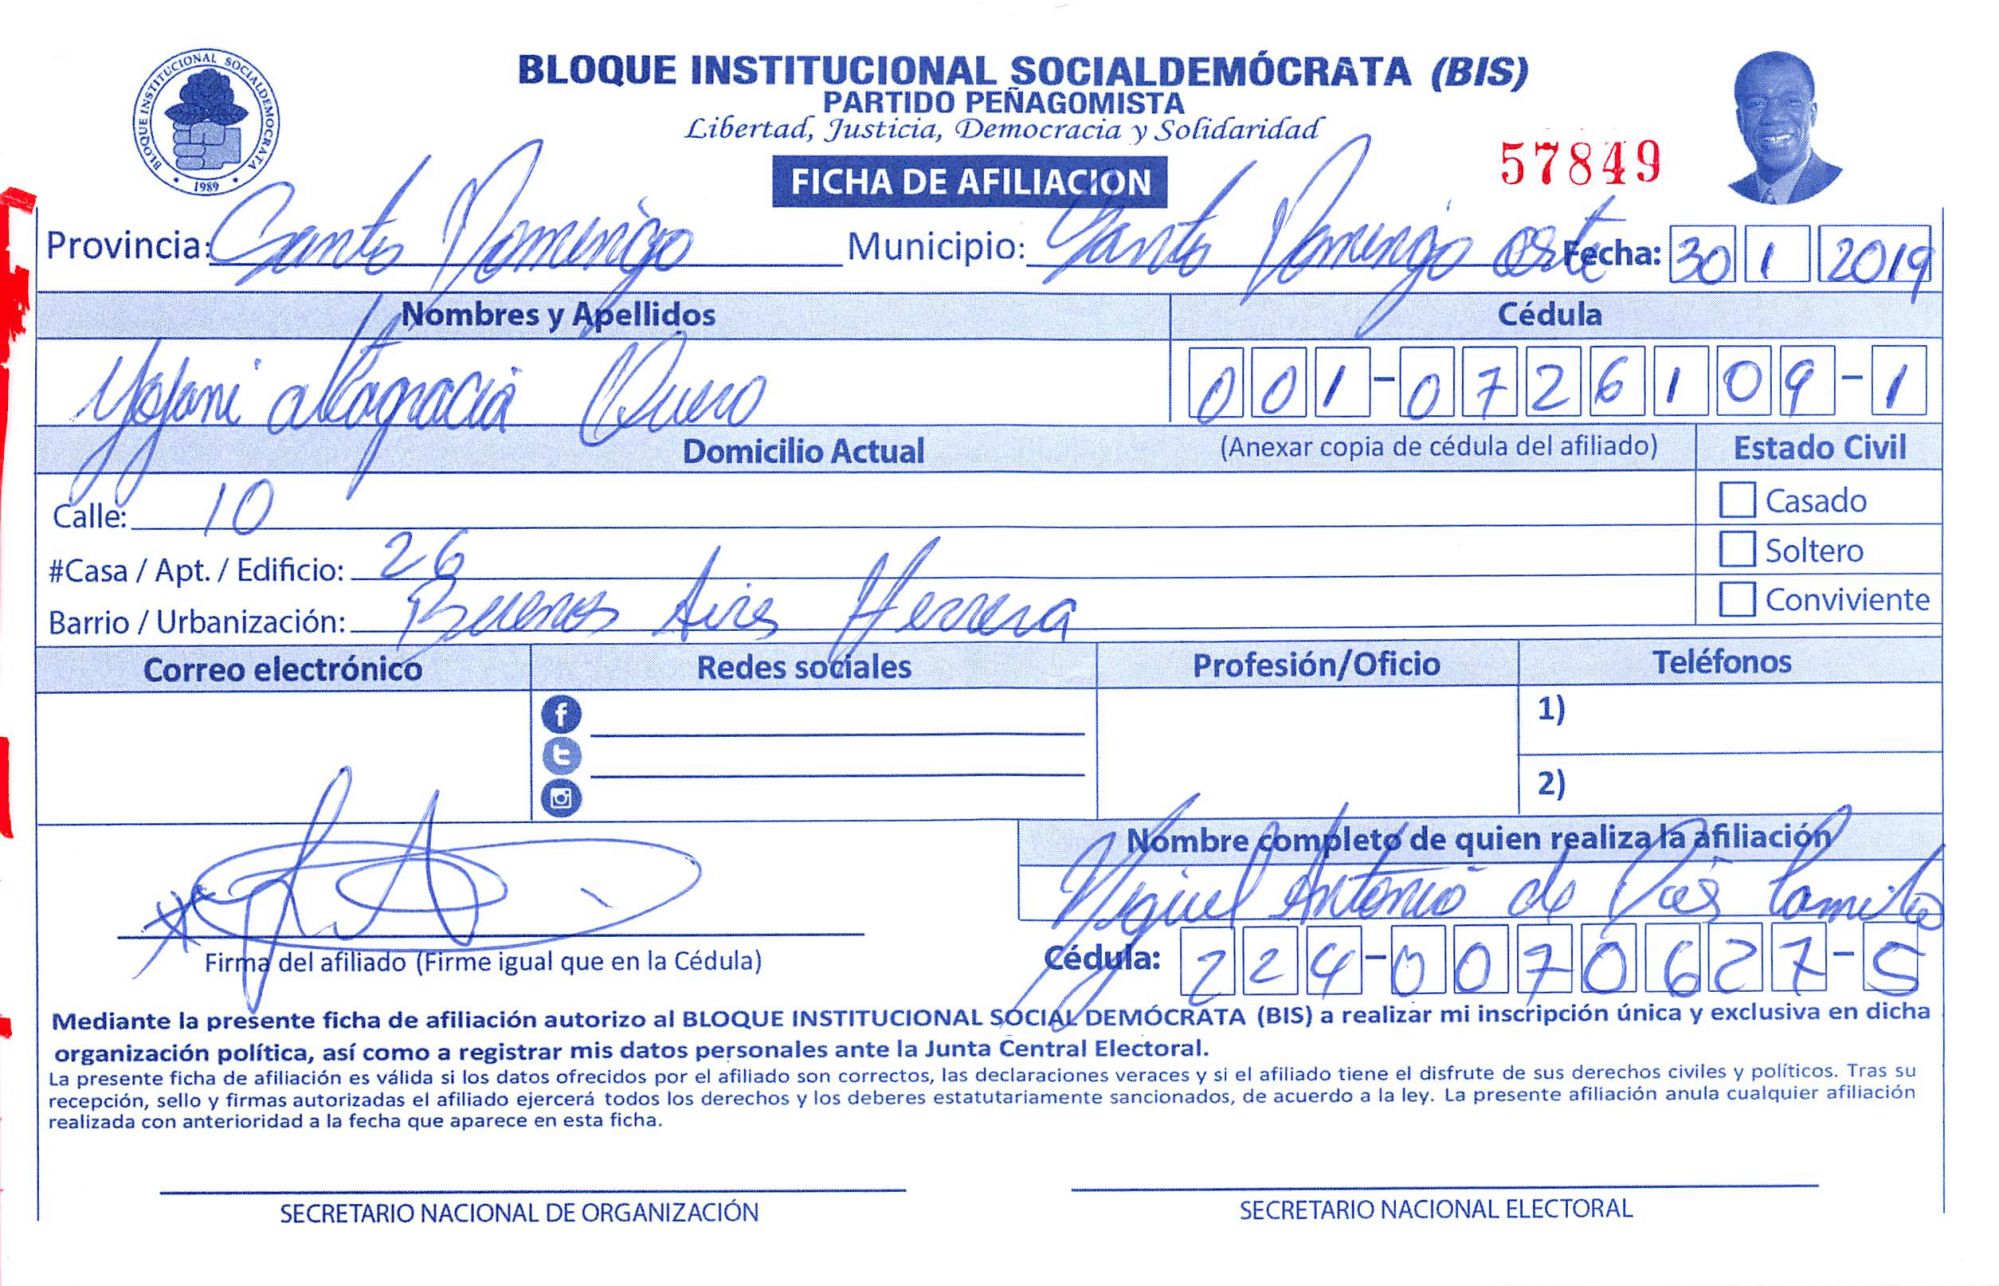 BLOQUE INSTITUCIONAL SOCIALDEMÓCRATA (BIS)
PARTIDO PEÑAGOMISTA
Libertad, Justicia, Democracia y Solidaridad
BLOQUE INSTITUCIONAL SOCIALDEMOCRATA
1989
FICHA DE AFILIACION
57849
Provincia: Santo Domingo Municipio: Santo Domingo oeste Fecha: 30 1 2019
Nombres y Apellidos Cédula
altagracia 001-0726109-1
Domicilio Actual (Anexar copia de cédula del afiliado) Estado Civil
Calle: 10 Casado
#Casa / Apt. / Edificio: 26 Soltero
Barrio / Urbanización: Buenos Aires Herrera Conviviente
Correo electrónico Redes sociales Profesión/Oficio Teléfonos
1)
2)
Nombre completo de quien realiza la afiliación
Miguel Antonio de
Firma del afiliado (Firme igual que en la Cédula) Cédula: 224-0070627-5
Mediante la presente ficha de afiliación autorizo al BLOQUE INSTITUCIONAL SOCIAL DEMÓCRATA (BIS) a realizar mi inscripción única y exclusiva en dicha
organización política, así como a registrar mis datos personales ante la Junta Central Electoral.
La presente ficha de afiliación es válida si los datos ofrecidos por el afiliado son correctos, las declaraciones veraces y si el afiliado tiene el disfrute de sus derechos civiles y políticos. Tras su
recepción, sello y firmas autorizadas el afiliado ejercerá todos los derechos y los deberes estatutariamente sancionados, de acuerdo a la ley. La presente afiliación anula cualquier afiliación
realizada con anterioridad a la fecha que aparece en esta ficha.
SECRETARIO NACIONAL DE ORGANIZACIÓN SECRETARIO NACIONAL ELECTORAL